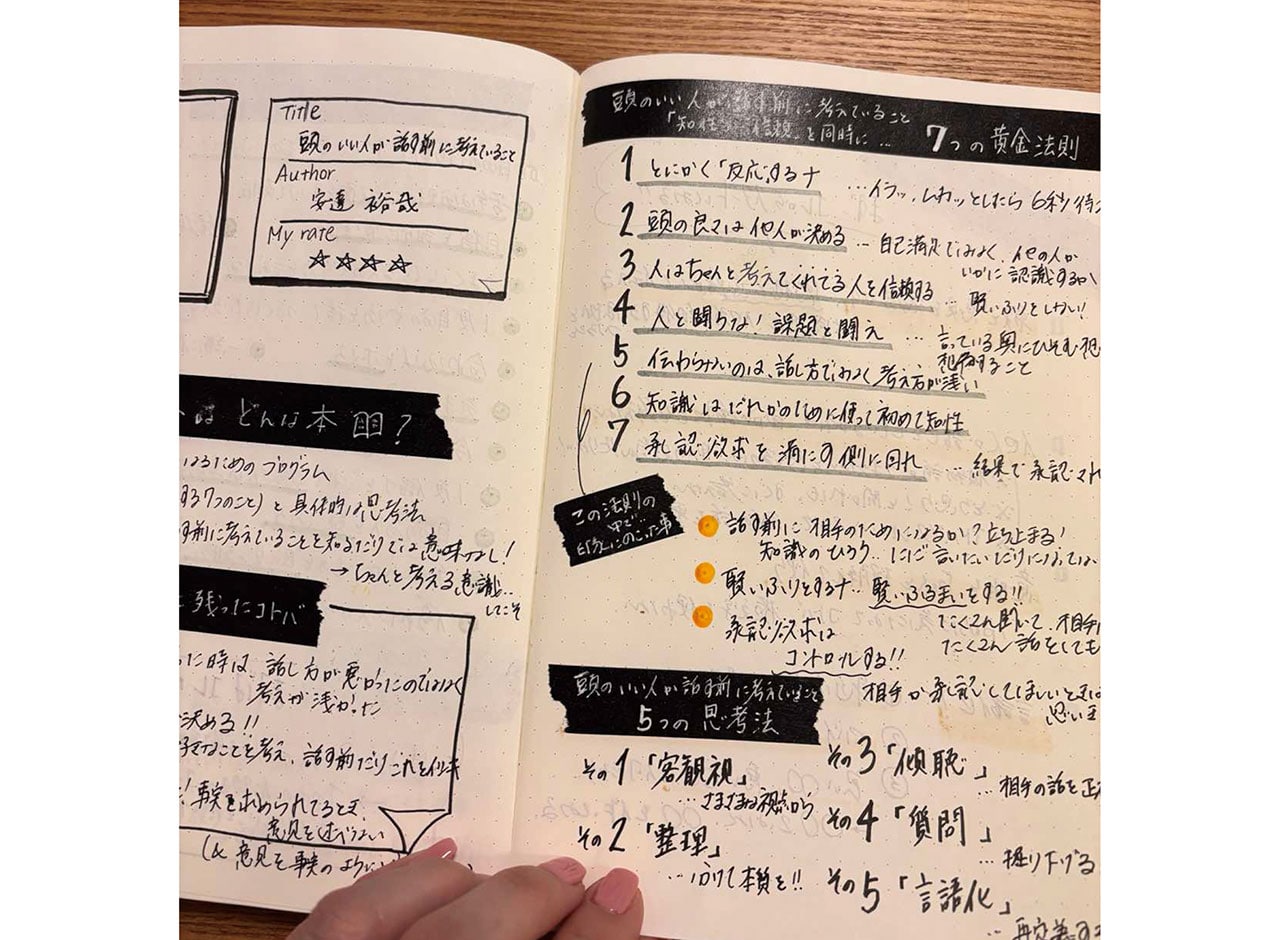 Title
頭のいい人が話す前に考えていること
Author
安達 裕哉
My rate
☆☆☆☆
はどんな本？
なるためのプログラム
する7つのこと)と具体的な思考法
す前に考えていることを知るだけでは意味なし!
→ちゃんと考える意識..
してこそ
残ったコトバ
った時は、話し方が悪かったのではなく
考えが浅かった
決める!!
なことを考え、話す前だけ
!事実を求められてるとき、
意見を
(& 意見を事実のように
頭のいい人が話す前に考えていること
「知性と信頼」を同時に.. 7つの黄金法則
1 とにかく「反応するナ …イラッ,しわッとしたら6秒待
2 頭の良さは他人が決める … 自己満足ではなく、他の人が
いかに認識するか
3 人はちゃんと考えてくれてる人を信頼する … 賢いふりをしない!
4 人と闘うな! 課題と闘え … 言っている奥にひそむ
すること
5 伝わらないのは、話し方でなく考え方が浅い
6 知識はだれかのために使って初めて知性
7 承認欲求を満たす側に回れ …結果で承認され
この法則の
中で…
にのこった事
話す前に相手のためになるか?立ち止まる!
知識のひろう.. ただ言いたいだけになってない
賢いふりをするナ 賢いふるまいをする!!
承認欲求は
コントロールする!!
たくさん聞いて、相手
たくさん話をしても
相手が承認してほしいときは
思いま
頭のいい人が話す前に考えていること
5つの思考法
その1「客観視」
…さまざまな視点から
その2「整理」
…分けて本質を!!
その3「傾聴」
…相手の話を正
その4「質問」
…掘り下げる
その5「言語化」
…再定義する